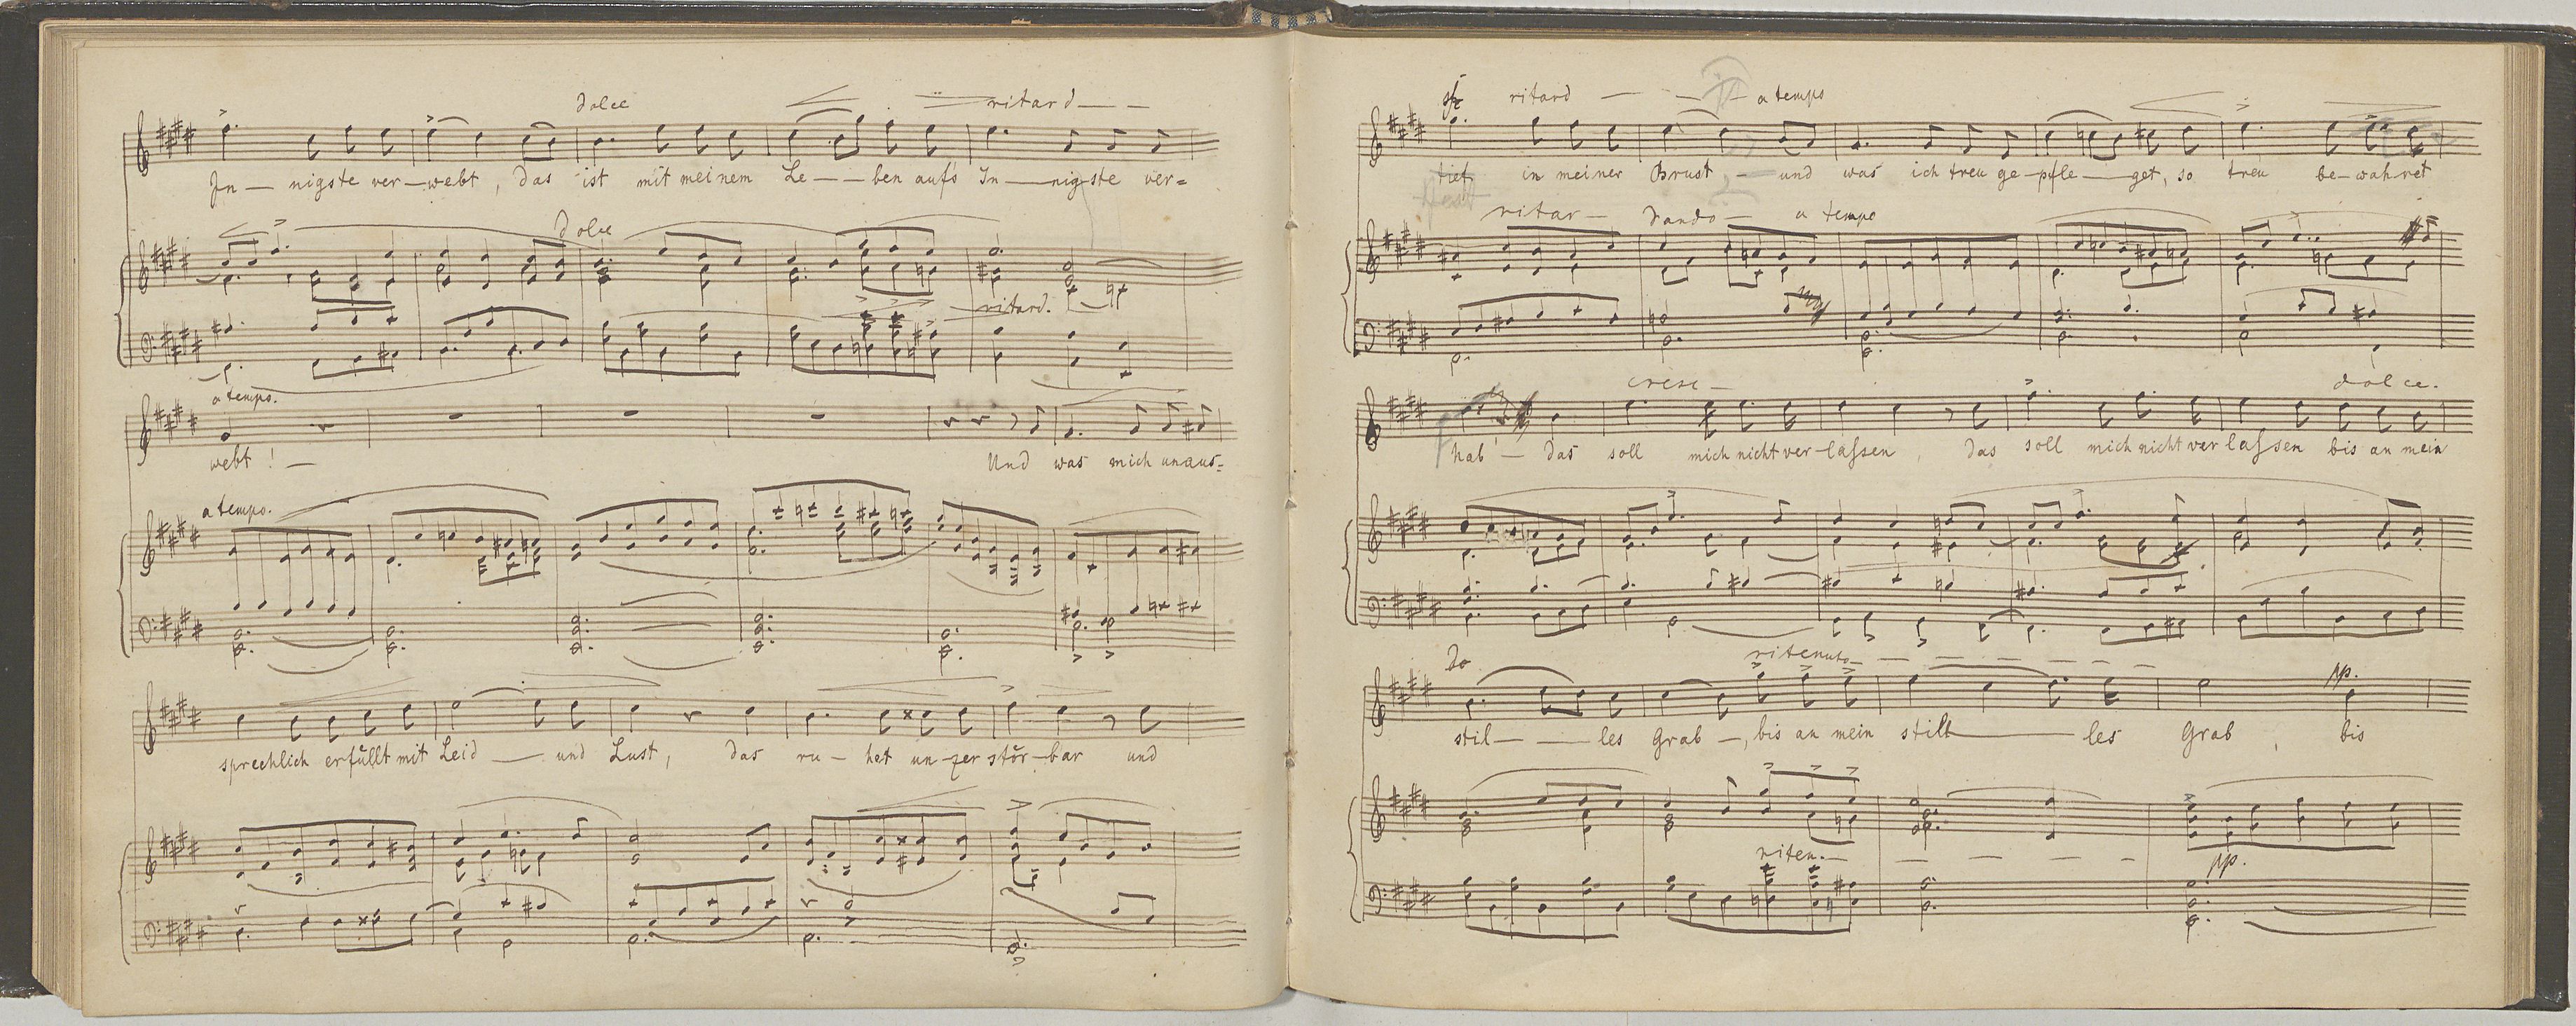 dolce ritard
In-nigste ver-webt, das ist mit meinem Le--ben aufs In-nigste ver=
dolce
ritard.
a tempo.
webt! - Und was mich unaus=
a tempo.
sprechlich erfüllt mit Leid - und Lust, das ru-het un-zer stör-bar und
sfz ritard - - a tempo
tief in meiner Brust - und was ich treu ge-pfle-get, so treu be-wahret
fest
ritar - dando - a tempo
cresc - dolce.
hab' - das soll mich nicht ver-laſsen, das soll mich nicht ver laſsen bis an mein
do ritenuto - - - - - - pp.
stil--les Grab -, bis an mein still-les Grab, bis
riten. - - - - - pp.